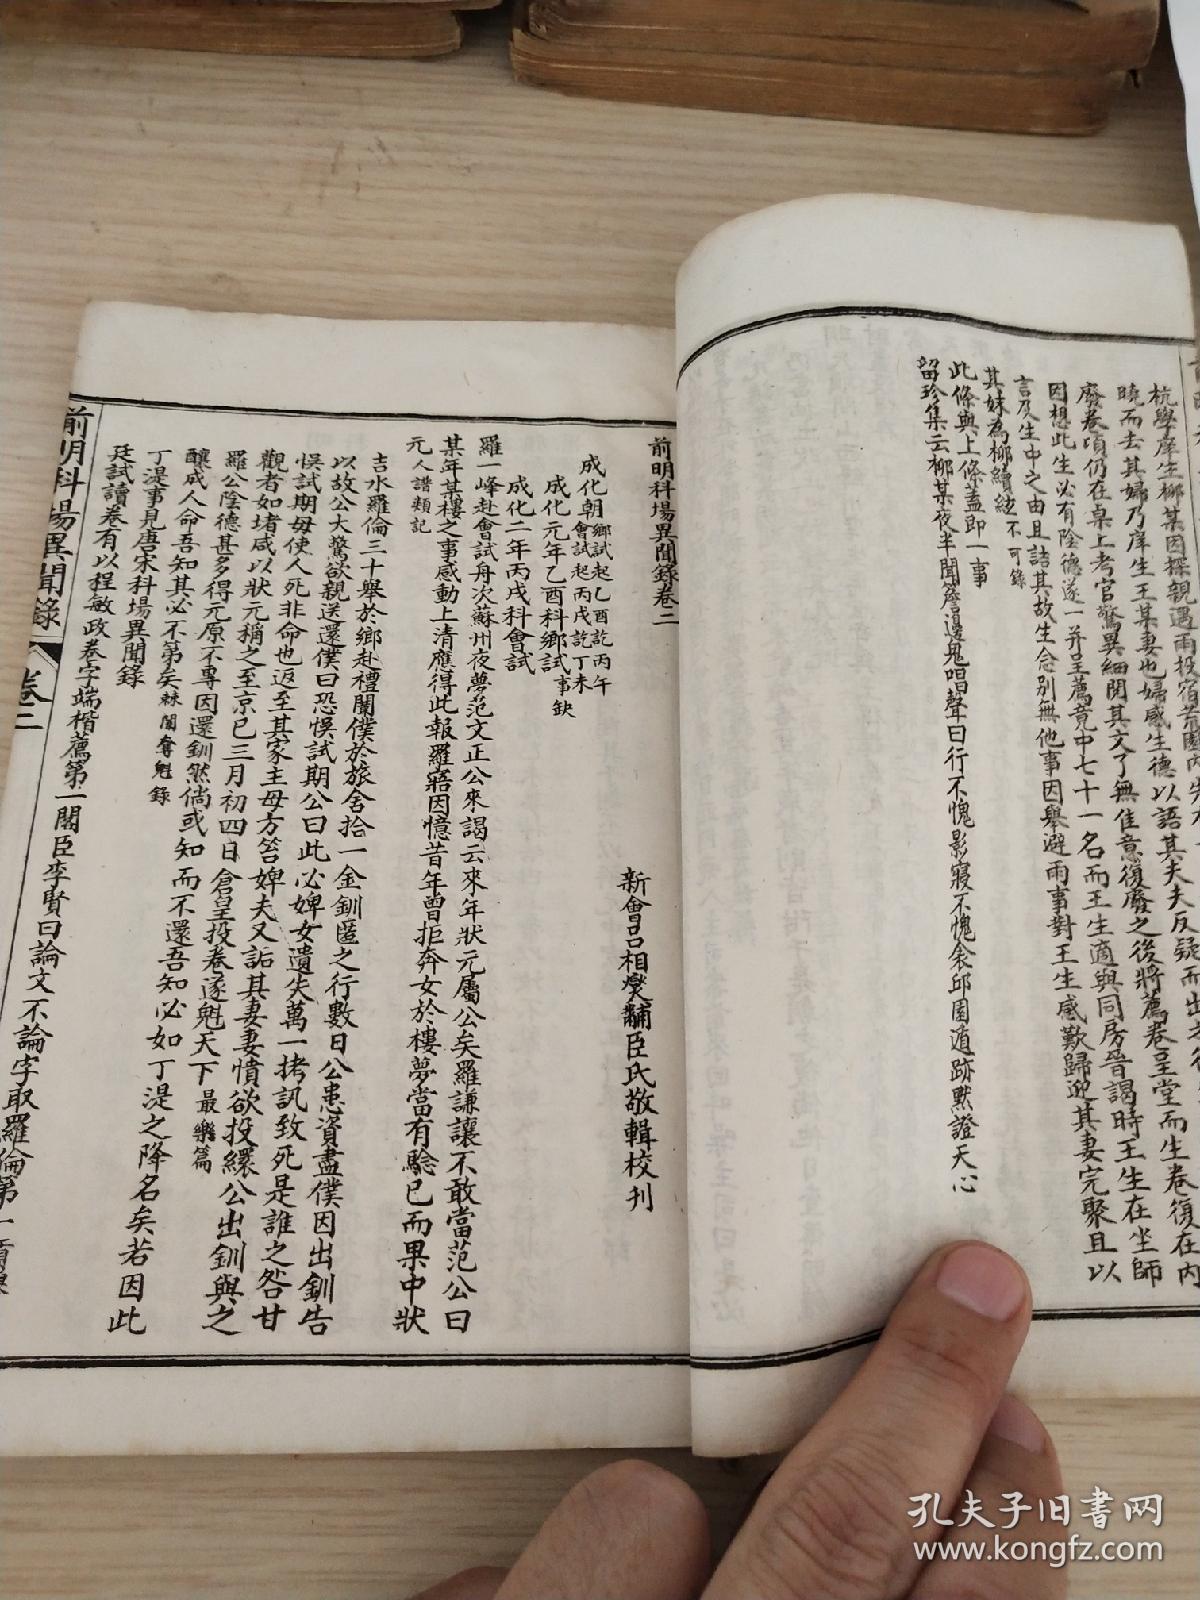 杭學庠生柳某因探親遇雨投宿荒園內先有
曉而去其婦乃庠生王某妻也婦感生德以語其夫夫反疑而出
廢卷頃仍在桌上考官驚異細閱其文了無佳意復廢之後將薦卷呈堂而生卷復在內
因想此生必有陰德遂一并呈薦竟中七十一名而王生適與同房晉謁時王生在坐師
言及生中之由且詰其故生念別無他事因舉避雨事對王生感歎歸迎其妻完聚且以
其妹為柳續絃不可錄
此條與上條蓋即一事
留珍集云柳某夜半聞簷邊鬼唱聲曰行不愧影寢不愧衾邱園遁跡默證天心
前明科場異聞錄卷二
新會呂相燮黼臣氏敬輯校刊
成化朝鄉試起乙酉訖丙午會試起丙戌訖丁未
成化元年乙酉科鄉試事缺
成化二年丙戌科會試
羅一峰赴會試舟次蘇州夜夢范文正公來謁云來年狀元屬公矣羅謙讓不敢當范公曰
某年某樓之事感動上清應得此報羅寤因憶昔年曾拒奔女於樓夢當有驗已而果中狀
元人譜類記
吉水羅倫三十舉於鄉赴禮闈僕於旅舍拾一金釧匿之行數日公患資盡僕因出釧告
以故公大驚欲親送還僕曰恐悞試期公曰此必婢女遺失萬一拷訊致死是誰之咎甘
悞試期毋使人死非命也返至其家主母方笞婢夫又詬其妻妻憤欲投繯公出釧與之
觀者如堵咸以狀元稱之至京已三月初四日倉皇投卷遂魁天下最樂篇
羅公陰德甚多得元原不專因還釧然倘或知而不還吾知必如丁湜之降名矣若因此
釀成人命吾知其必不第矣棘闈奪魁錄
丁湜事見唐宋科場異聞錄
廷試讀卷有以程敏政卷字端楷薦第一閣臣李賢曰論文不論字取羅倫第一
前明科場異聞錄 卷二
孔夫子旧书网
www.kongfz.com